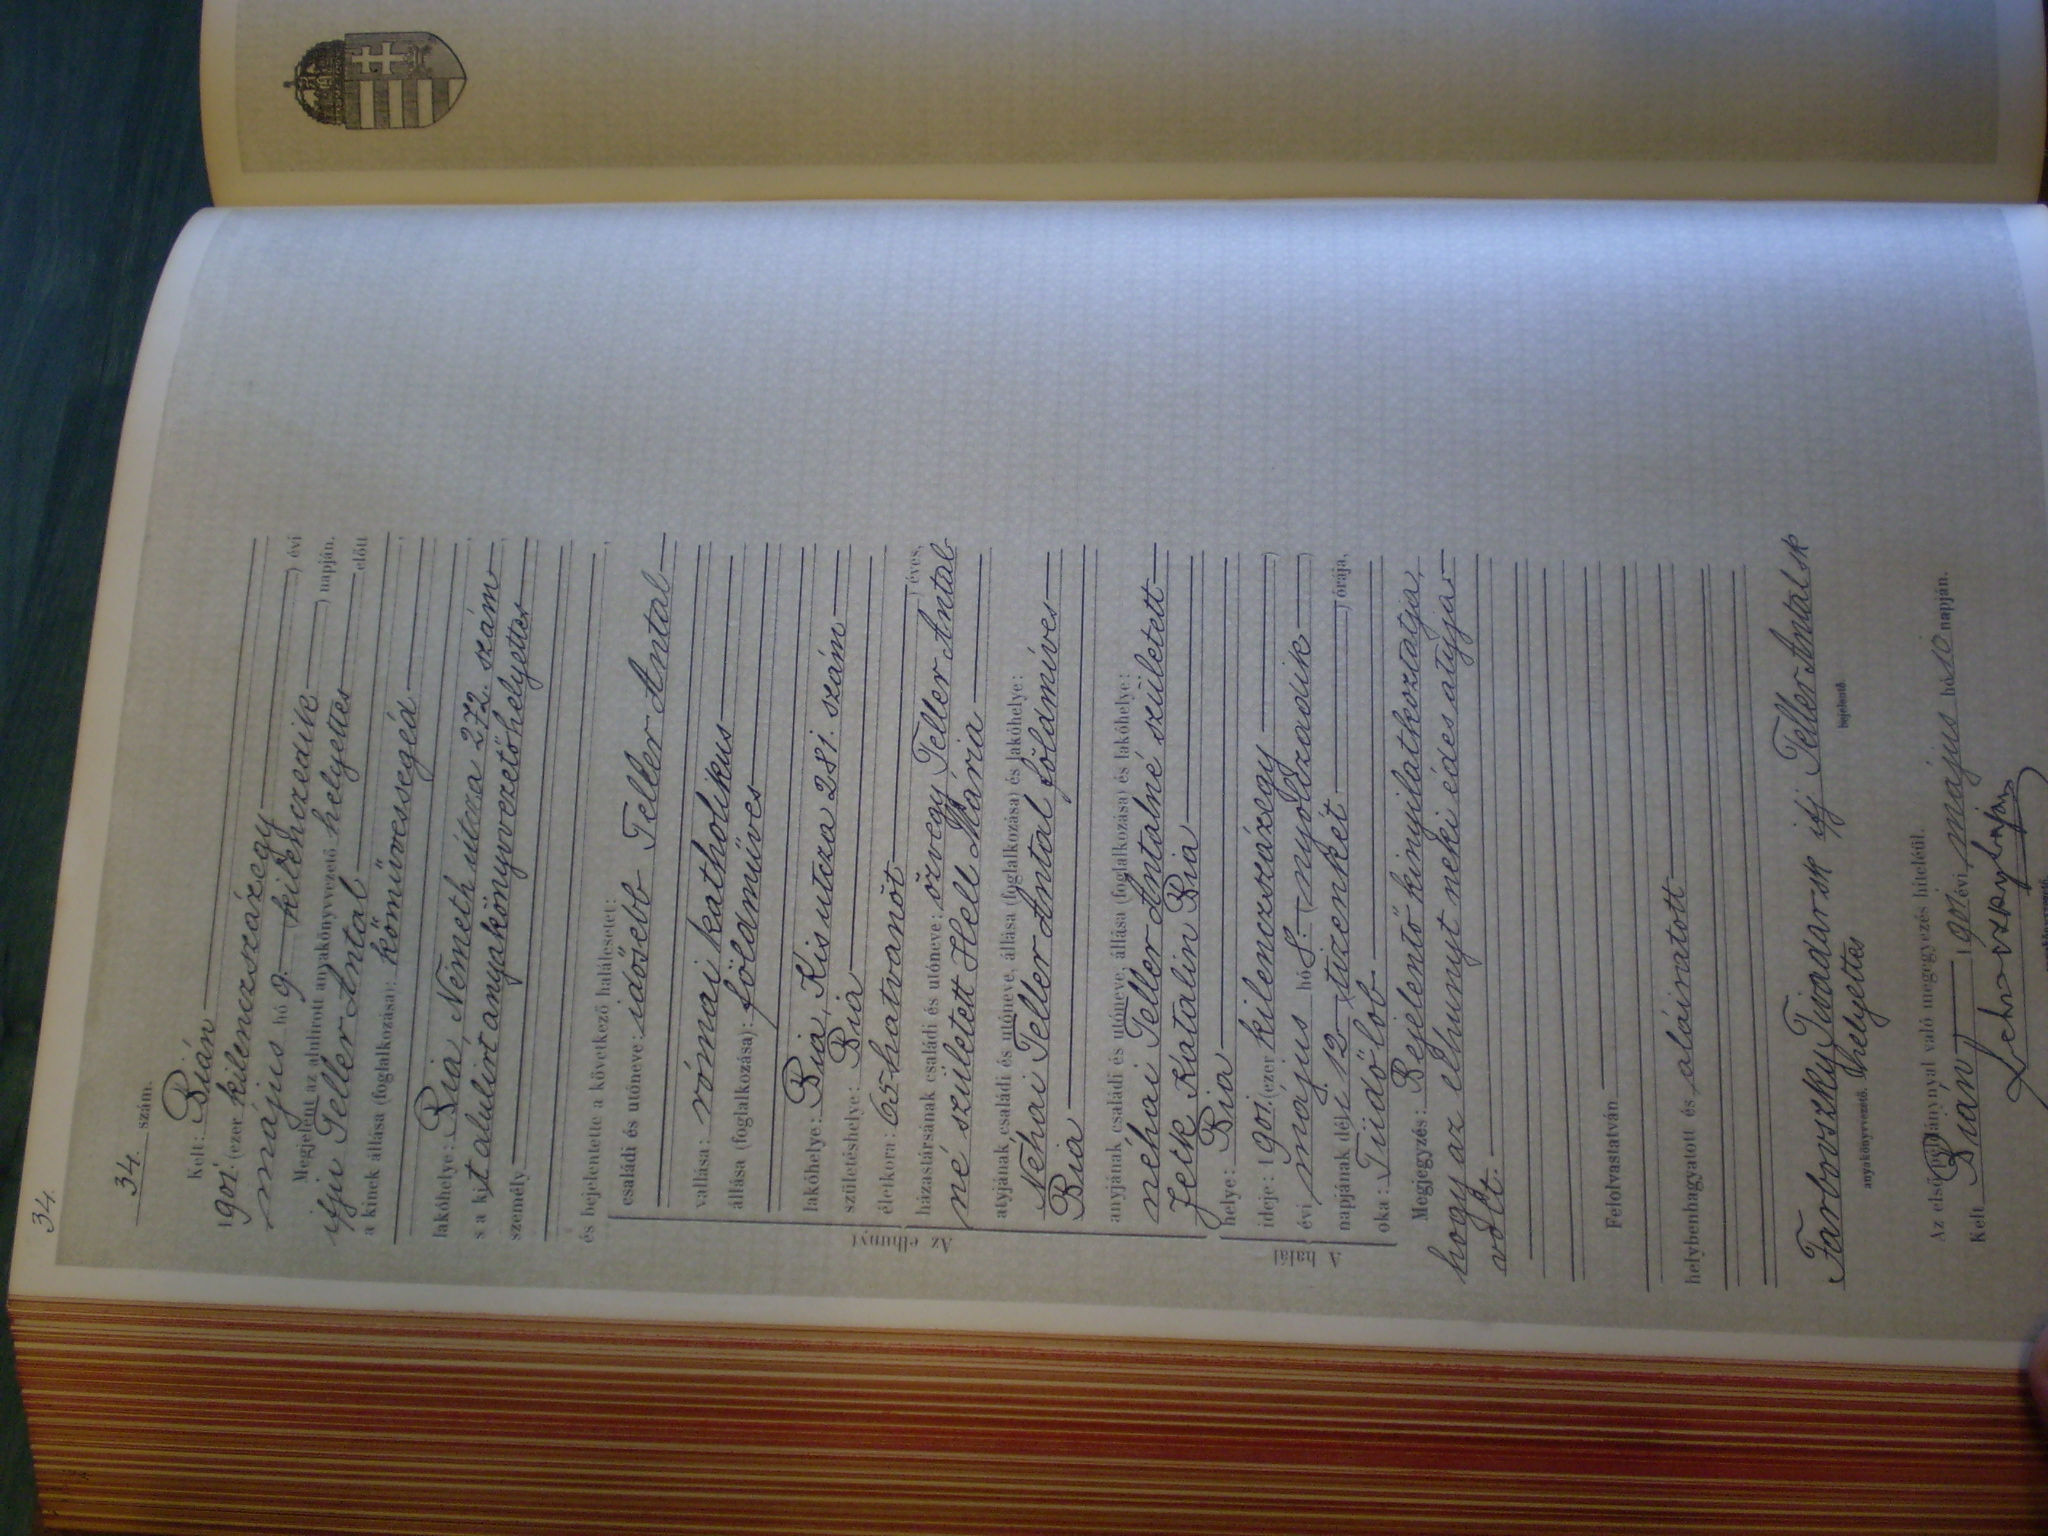 34.
34. szám.
Kelt: Bián
1901. (ezer kilenczszázegy ) évi
május hó 9. kilenczedik ) napján.
Megjelent az alulirott anyakönyvezető helyettes előtt
ifju Teller Antal
a kinek állása (foglalkozása): kőmüvessegéd
lakóhelye: Bia, Németh útcza 272. szám
s a kit alulirt anyakönyvvezetőhelyettes
személy
és bejelentette a következő halálesetet:
Az elhunyt
családi és utóneve: idősebb Teller Antal
vallása: római katholikus
állása (foglalkozása): földműves
lakóhelye: Bia, Kis utcza 281. szám
születéshelye: Bia
életkora: 65 hatvanöt ) éves,
házastársának családi és utóneve: özvegy Teller Antal
né született Hell Mária
atyjának családi és utóneve, állása (foglalkozása) és lakóhelye:
Néhai Teller Antal földmíves
Bia
anyjának családi és utóneve, állása (foglalkozása) és lakóhelye:
néhai Teller Antalné született
Katalin Bia
A halál
helye: Bia
ideje: 1901. (ezer kilenczszázegy )
évi május hó 8. (nyolczadik )
napjának dél 12 tizenkét ) órája,
oka: Tüdőlob
Megjegyzés: Bejelentő kinyilatkoztatja,
hogy az elhunyt neki édes atyja
volt.
Felolvastatván
helybenhagyatott és aláiratott
Tivadar sk ifj Teller Antal sk
anyakönyvvezető. helyettes bejelentő.
Az első példánynyal való megegyezés hiteléül.
Kelt Bián 1901 évi május hó 10 napján.